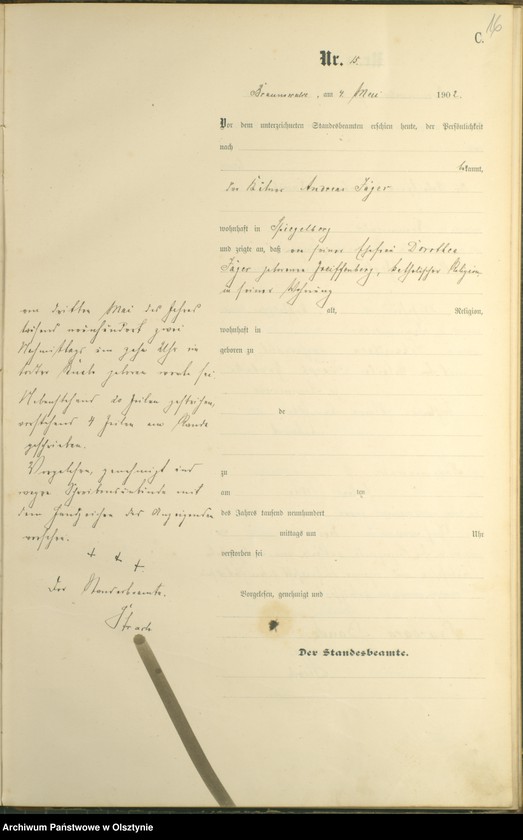 16
C.
Nr. 15.
Braunswalde, am 4. Mai 1902.
Vor dem unterzeichneten Standesbeamten erschien heute, der Persönlichkeit
nach
bekannt,
der Kätner Andreas Jäger
wohnhaft in Spiegelberg
und zeigte an, daß von seiner Ehefrau Dorothea
Jäger geborenen Greiffenberg, katholischer Religion,
in seiner Wohnung
alt, Religion,
wohnhaft in
geboren zu
de
zu
am ten
des Jahres tausend neunhundert
mittags um Uhr
verstorben sei
Vorgelesen, genehmigt und
Der Standesbeamte.
am dritten Mai des Jahres
tausend neunhundert zwei
Nachmittags um zehn Uhr ein
todter Knabe geboren worden sei.
Nebenstehend 20 Zeilen gestrichen,
vorstehend 4 Zeilen am Rande
geschrieben.
Vorgelesen, genehmigt und
wegen Schreibensunkunde mit
dem Handzeichen des Anzeigenden
versehen.
+ + +
Der Standesbeamte.
Archiwum Państwowe w Olsztynie